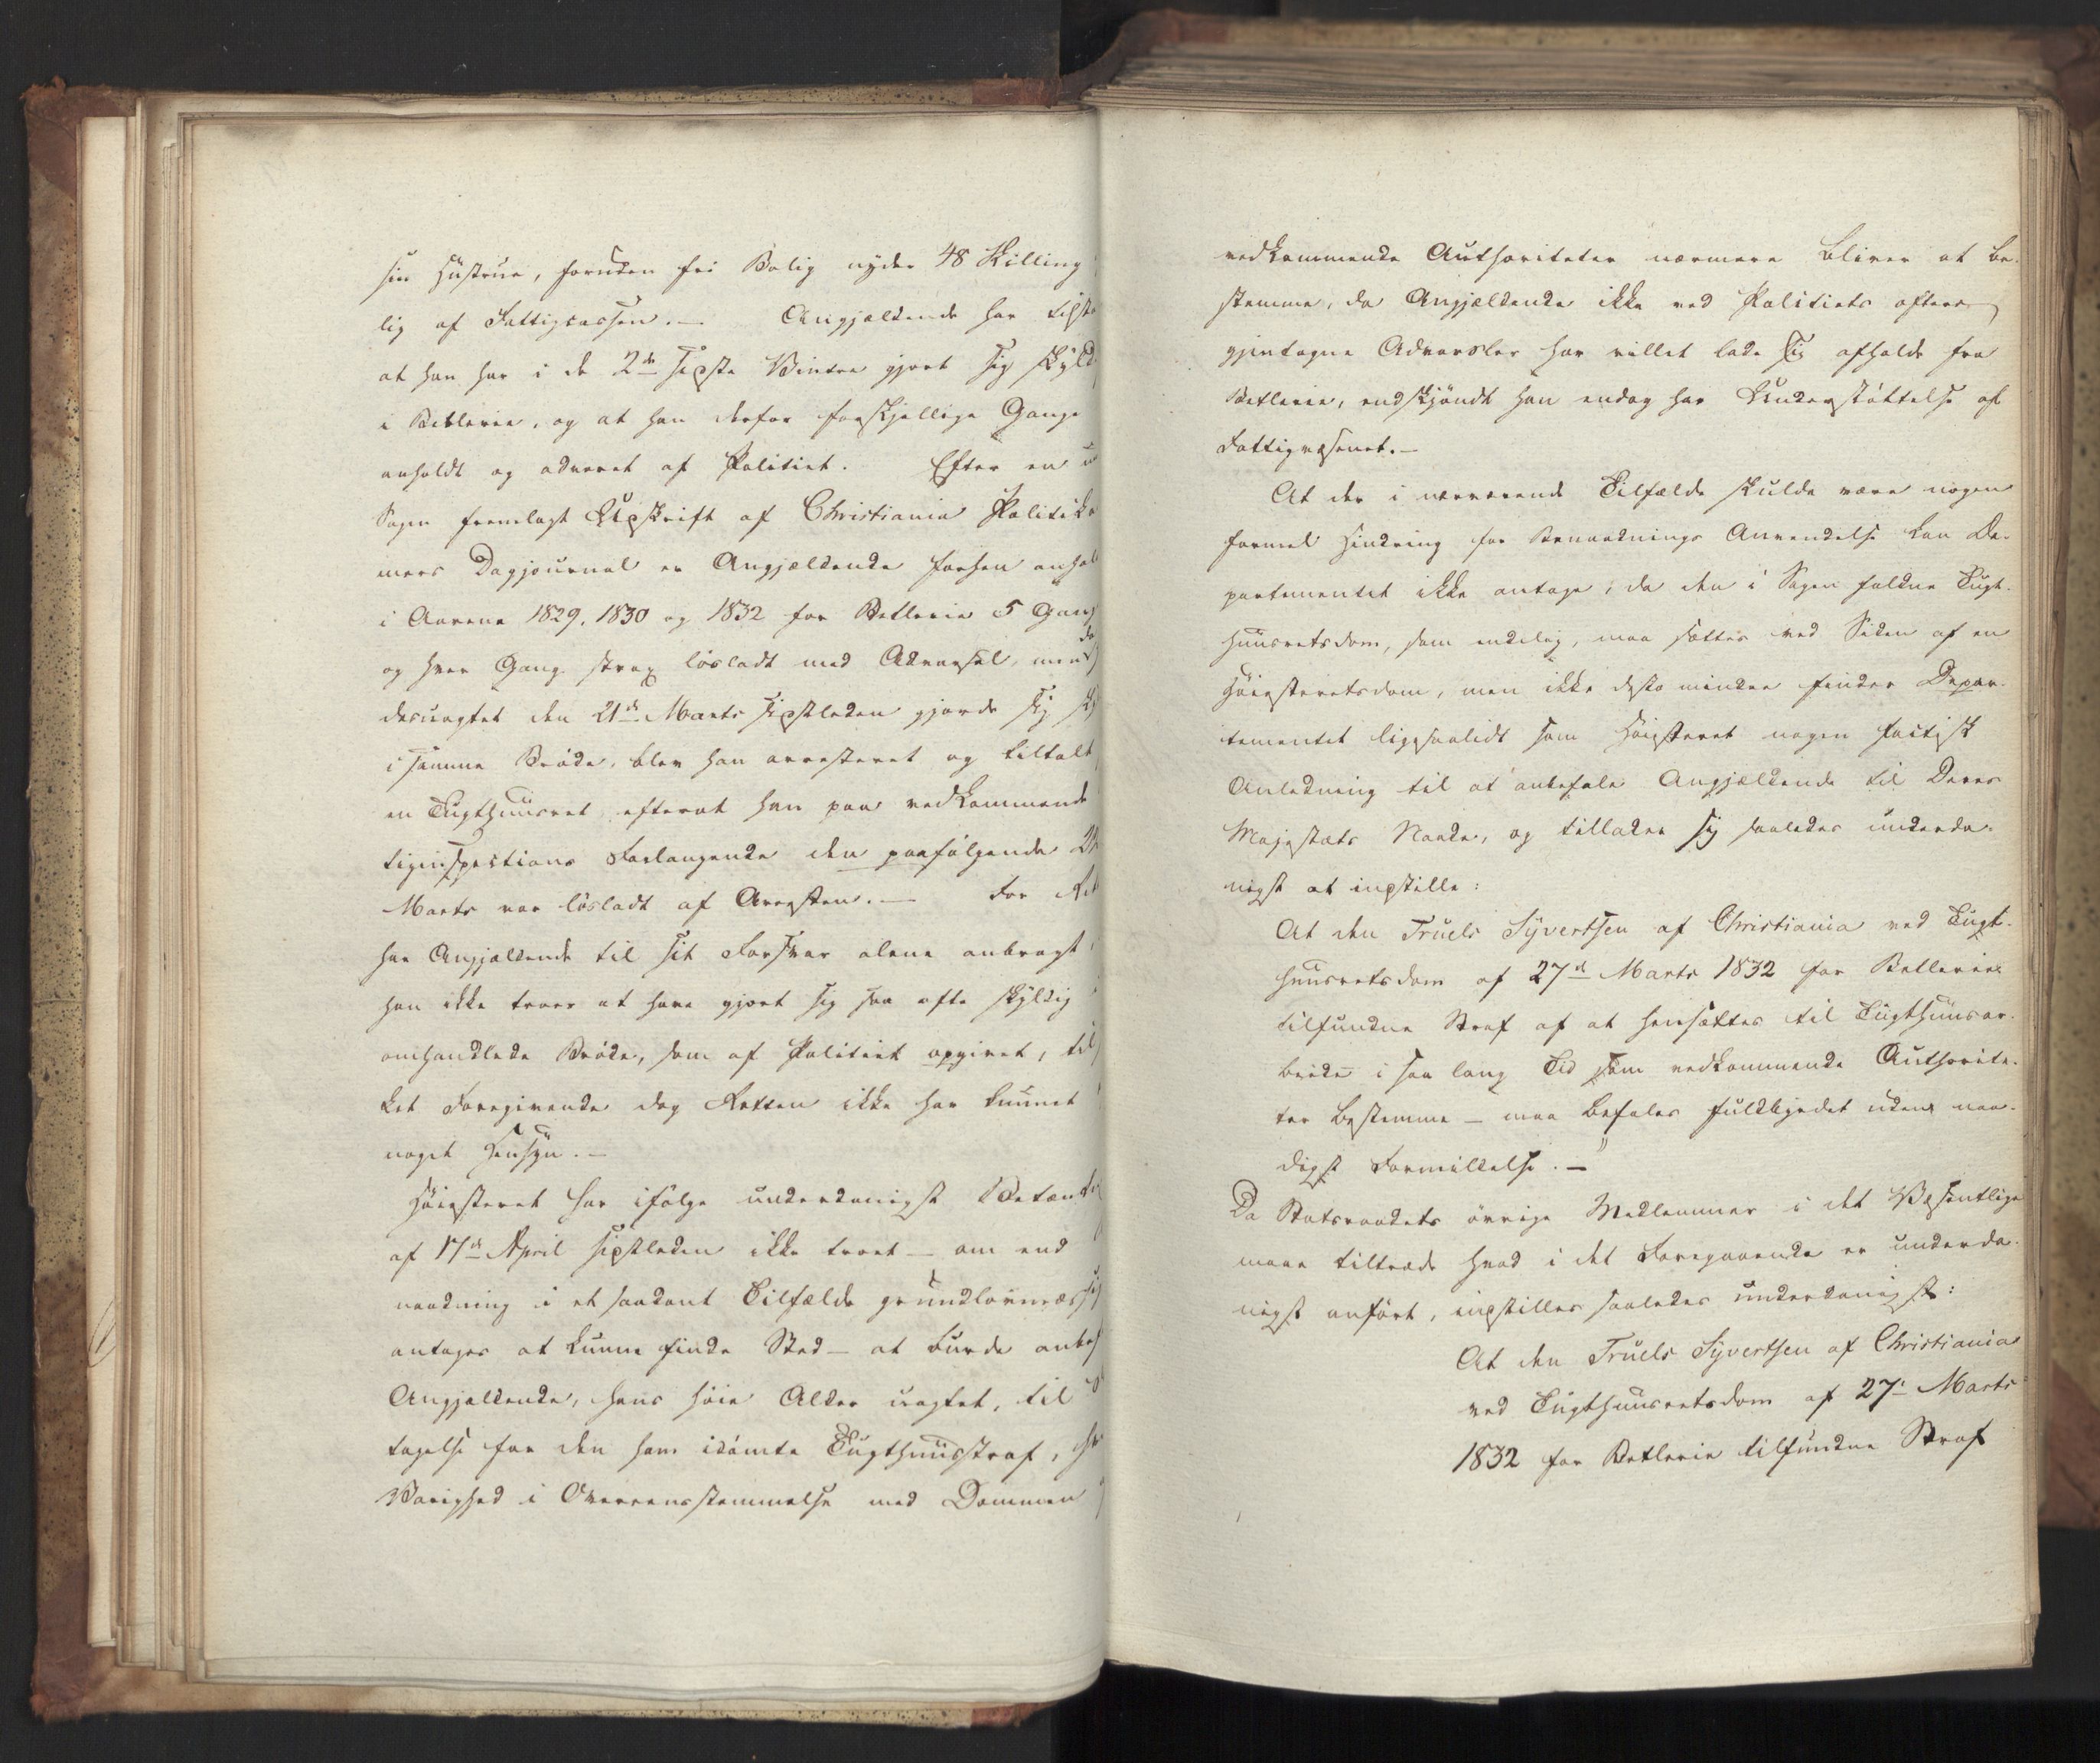 sin Hustrue, foruden fri Bolig nyder 48 Skilling
lig af Fattigcassen. — Angjældende har tilstaa
at han har i de 2de sidste Vintre gjort sig skyld
i Betlerie, og at han derfor forskjellige Gange
anholdt og advaret af Politiet. Efter en u
Sagen fremlagt Udskrift af Christiania Politika
mers Dagjournal er Angjældende forhen anhol
i Aarene 1829, 1830 og 1832 for Betlerie 5 Gang
og hver Gang strax lösladt med Advarsel, men da
desuagtet den 21de Marts sidstleden gjorde sig sky
i samme Bröde, blev han arresteret og tiltalt
en Tugthuusret, efterat han paa vedkommende
tiginspections Forlangende den paafölgende 24
Marts var lösladt af Arresten. — For Ret
har Angjældende til sit Forsvar alene anbragt,
han ikke troer at have gjort sig saa ofte skyldig
omhandlede Bröde, som af Politiet opgivet, til
ket Foregivende dog Retten ikke har kunnet
noget Hensyn. —
Höiesteret har ifölge underdanigst Betænk
af 17de April sidstleden ikke troet — om end
naadning i et saadant Tilfælde grundlovmæssig
antages at kunne finde Sted — at burde anbef
Angjældende, hans höie Alder uagtet, til
tagelse for den ham idömte Tugthuusstraf, hv
Varighed i Overeensstemmelse med Dommen
vedkommende Authoriteter nærmere bliver at be-
stemme, da Angjældende ikke ved Politiets oftere
gjentagne Advarsler har villet lade sig afholde fra
Betlerie, endskjöndt han endog har Understöttelse af
Fattigvæsenet. —
At der i nærværende Tilfælde skulde være nogen
formel Hindring for Benaadnings Anvendelse kan De-
partementet ikke antage, da den i Sagen faldne Tugt-
huusretsdom, som endelig, maa sættes ved Siden af en
Höiesteretsdom, men ikke desto mindre finder Depar-
tementet ligesaalidt som Höiesteret nogen factisk
Anledning til at anbefale Angjældende til Deres
Majestæts Naade, og tillader sig saaledes underda-
nigst at indstille:
At den Truels Syvertsen af Christiania ved Tugt-
huusretsdom af 27de Marts 1832 for Betlerie
tilfundne Straf af at hensættes til Tugthuusar-
beide i saa lang Tid som vedkommende Authorite-
ter bestemme — maa befales fuldbyrdet uden naa-
digst Formildelse. —"
Da Statsraadets övrige Medlemmer i det Væsentlige
maae tiltræde hvad i det Foregaaende er underda-
nigst anfört, indstilles saaledes underdanigst:
At den Truels Syvertsen af Christiania
ved Tugthuusretsdom af 27de Marts
1832 for Betlerie tilfundne Straf